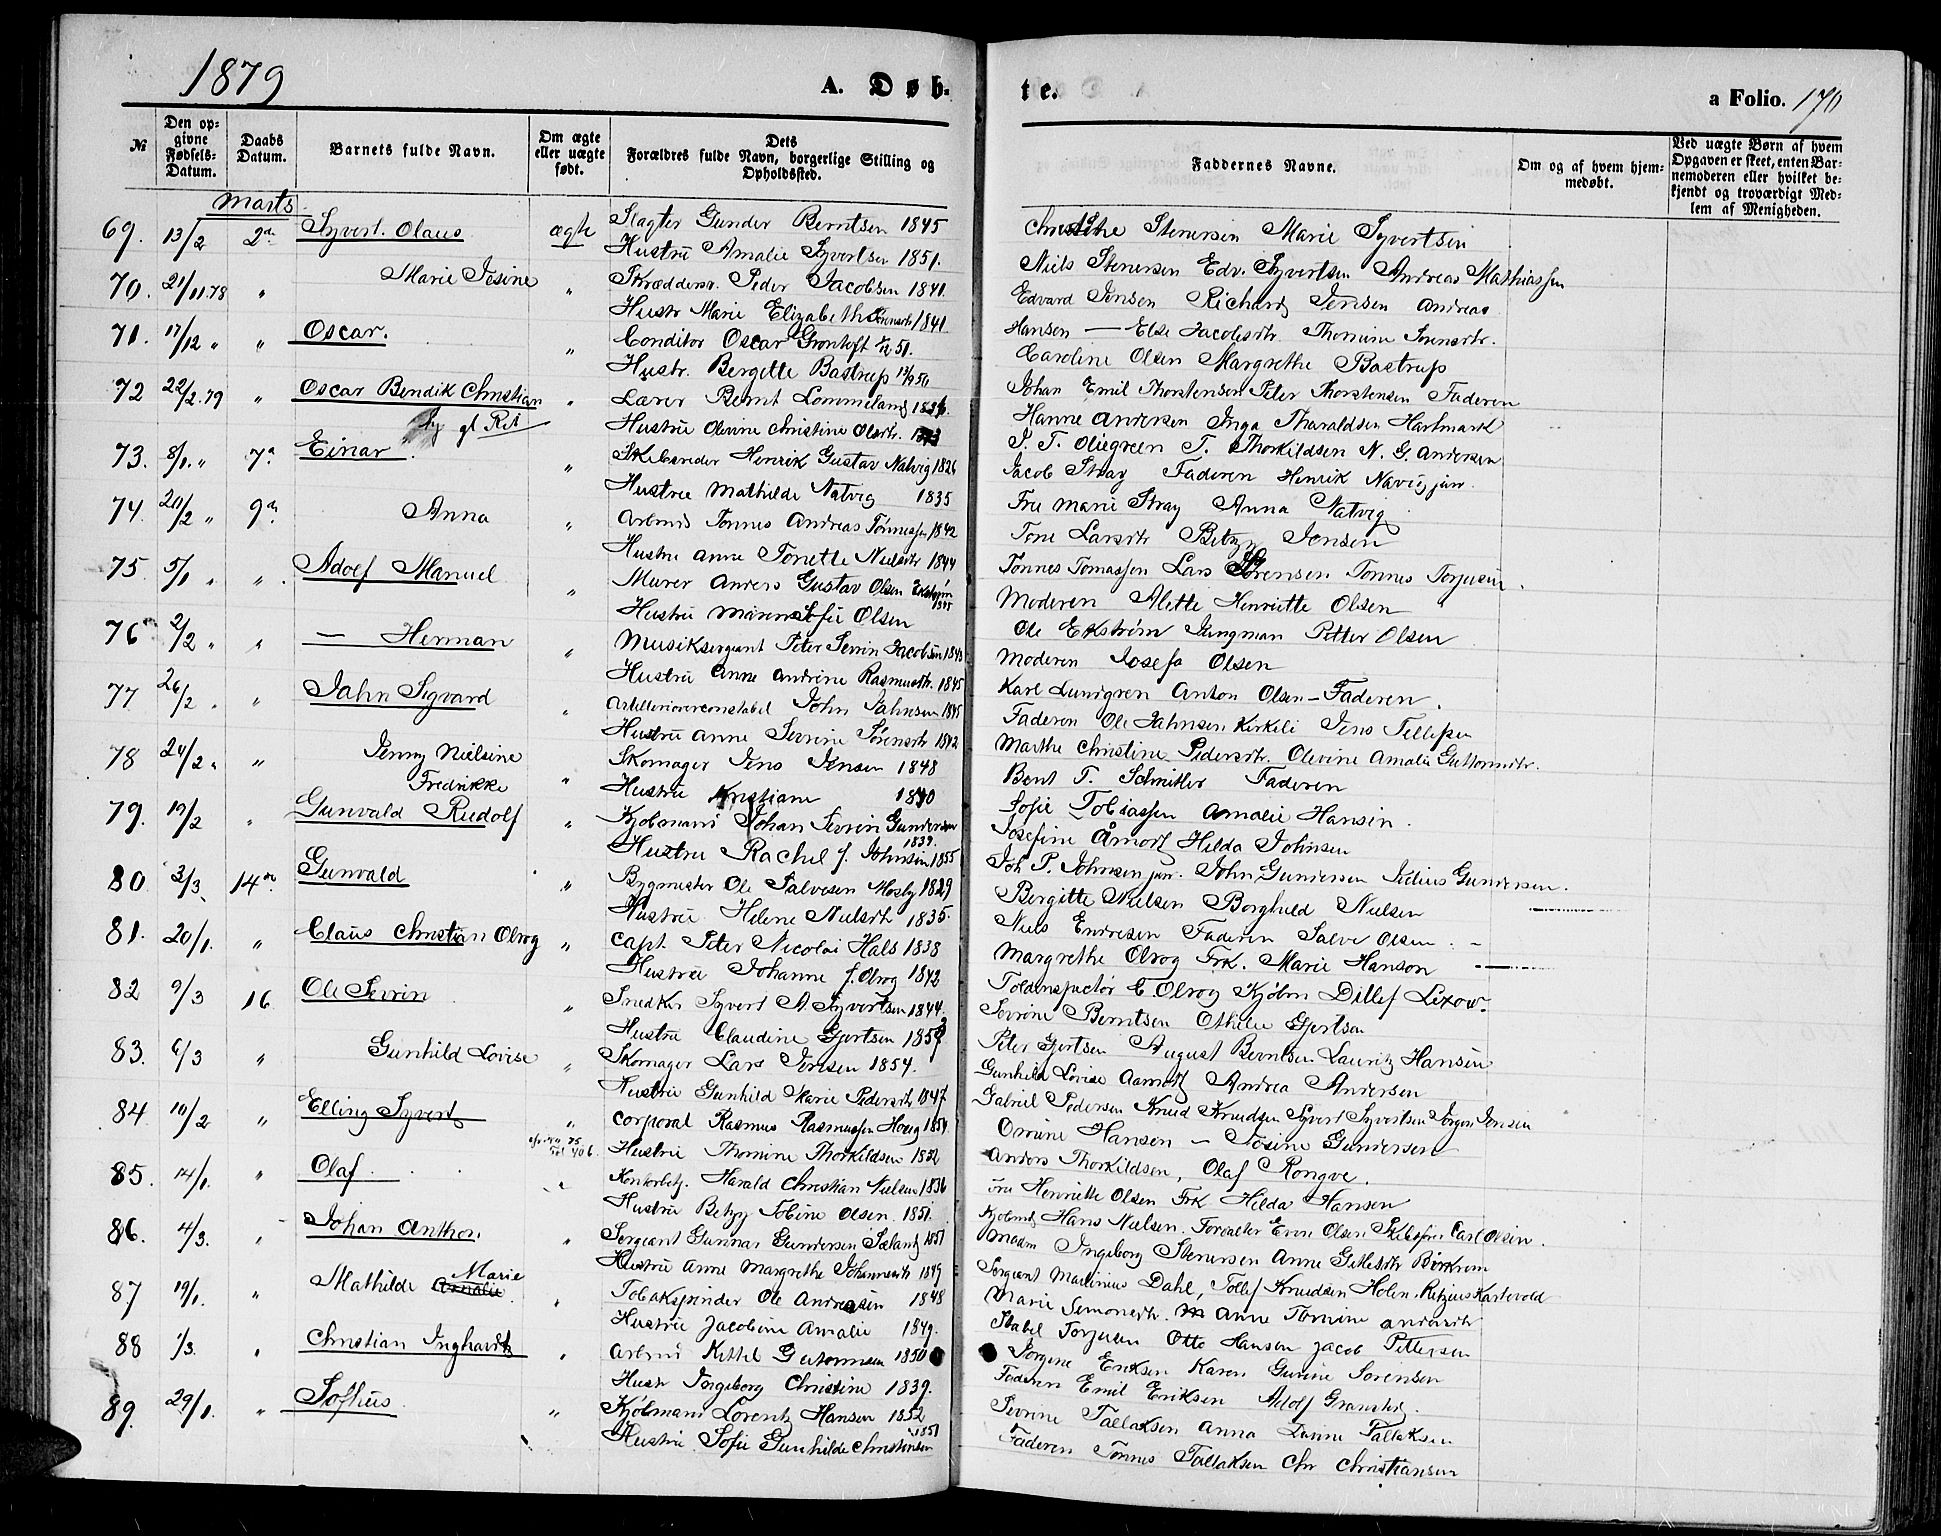 1879
A. Døb-
te.
a Folio. 170
№
Den opgivne Fødsels-Datum.
Daabs Datum.
Barnets fulde Navn.
Om ægte eller uægte født.
Dets Forældres fulde Navn, borgerlige Stilling og Opholdssted.
Faddernes Navne.
Om og af hvem hjemmedøbt.
Ved uægte Børn af hvem Opgaven er skeet, enten Barnemoderen eller hvilket bekjendt og troværdigt Medlem af Menigheden.
Marts
69. 13/2 2den Syvert Olaus ægte Slagter Gunder Berntsen 1845
Hustru Amalie Syvertsen 1851.
70. 21/11.78 " Marie Josine " Skrædder Peder Jacobsen 1841.
Hustr Marie Elizabeth 1841
71. 17/12 " " Oscar. " Conditor Oscar Grontoft 51.
Hustr. Bergette Bastrup
72 22/2.79 " Oscar Bendik Christian " Lærer Bernt Lommeland
Hustru Olevine Christine Olsdtr.
73. 8/1. " 7de Einar " Skibsreder Henrik Gustav Natvig 1826
Hustru Mathilde Natvig 1835
74. 20/2 " 9de Anna " Arbmd Tønnes Andreas Tønnessen 1842
Hustru Anne Tonette Nielsdtr 1844
75. 5/1 " " Adolf Manuel " Murer Anders Gustav Olsen Ekstrøm 1845
Hustru Maren Sofie Olsen
76 2/2 " " — Herman " Musiksergeant Peter Severin Jacobsen 1843
Hustru Anne Andrine Rasmusdtr. 1845
77 26/2 " " Jahn Sigvard " Artillerioverconstabel John Jahnsen 1845
Hustru Anne Severine Sørensdtr 1842
78 24/2 " " Jenny Nielsine Fredrikke " Skomager Jens Jensen 1848
Hustru Kristiane
79. 19/2 " Gunvald Rudolf " Kjøbmand Johan Severin Gundersen 1839.
Hustru Rachel f. Johnsen 1855
80. 3/3. 14de Gunvald " Bygmester Ole Salvesen Mosby 1829
Hustru Helene Nielsdtr 1835.
81. 20/1. " Claus Christian Olrog " Capt. Peter Nicolai Hals 1838
Hustru Johanne f. Olrog 1842
82 9/3 16 Ole Severin " Snedker Syvert A. Syvertsen 1844.
Hustru Claudine Gjertsen
83. 6/3 " Gunhild Lovise " Skomager Lars Jensen 1854.
Hustru Gunhild Marie Pedersdtr 1847
84. 10/2 " Elling Syvert " Corporal Rasmus Rasmussen Houg
Hustru Thomine Thorkildsen 1852
85. 14/1. " Olaf " Kontorbetj. Harald Christian Nielsen 1836
Hustru Betzy Tobine Olsen 1851.
86. 4/3. " Johan Anthon. " Sergeant Gunnar Gundersen Sæland 1851
Hustru Anne Margrethe Johannesdtr 1849
87 19/1. " Mathilde Marie " Tobakspinder Ole Andreasen 1848
Hustru Jacobine Amalie 1849.
88 1/3. " Christian Inghardt " Arbmd Kittel Guttormsen 1850
Hustr Ingeborg Christine 1839.
89. 29/1. " Sofhus " Kjøbmand Lorentz Hansen 1852
Hustru Sofie Gunhilde Christensen 1851
Christine Stenersen Marie Syvertsen
Niels Stenersen Edv. Syvertsen Andreas Mathiassen
Edvard Jensen Richard Jensen Andreas
Hansen — Else Jacobsdtr Thomine Jensdtr.
Caroline Olsen Margrethe Bastrup
Johan Emil Thorstensen Peter Thorstensen Faderen
Hanne Andersen Inga Tharaldsen Hartmark
T. Thorkildsen N. G. Andersen
Jacob Stray Faderen Henrik Navig jun.
Fru Marie Stray Anna Natvig
Tone Larsdtr Betzy Jensen
Tønnes Tomassen Lars Sørensen Tønnes Torjusen
Moderen Alette Henriette Olsen
Ole Ekstrøm Jungman Petter Olsen
Moderen Josefa Olsen
Karl Lundgren Anton Olsen - Faderen.
Faderen Ole Jahnsen Kirkeli Jens Tellefsen
Marthe Christine Pedersdtr. Olevine Amalie Guttormsdtr.
Bent T. Schnitler Faderen
Sofie Tobiassen Amalie Hansen.
Josefine Åmodt Hilda Johnsen
Joh P. Johnsen jun. John Gundersen Julius Gundersen.
Bergitte Nielsen Borghild Nielsen
Niels Endresen Faderen Salve Olsen. -
Margrethe Olrog Frk. Marie Hanson
Toldinspectør C Olrog Kjøbm Ditlef Lexow.
Severine Berntsen Othilie Gjertsen
Peter Gjertsen August Berntsen Lauritz Hansen
Gunhild Lovise Aamodt Andrea Andersen
Gabriel Pedersen Knud Knudsen Syvert Syvertsen Jørgen Jensen
Omine Hansen — Josine Gundersen
Anders Thorkildsen, Olaf Rongve.
Fru Henriette Olsen Frk Hilda Hansen
Kjøbmd Hans Nielsen. Forvalter Even Olsen Skibsfører Carl Olsen.
Madm Ingeborg Stenersen Anne Gitlesdtr Birkrem
Sergeant Martinius Dahl, Tollef Knudsen Holen.
Marie Simonsdtr. Anne Tomine Andersdtr
Stabel Torjusen Otto Hansen Jacob Pettersen
Jørgine Eriksen Karen Gurine Sørensen
Faderen Emil Eriksen Adolf
Severine Tallaksen Anna Tallaksen
Faderen Tønnes Tallaksen Chr Christiansen